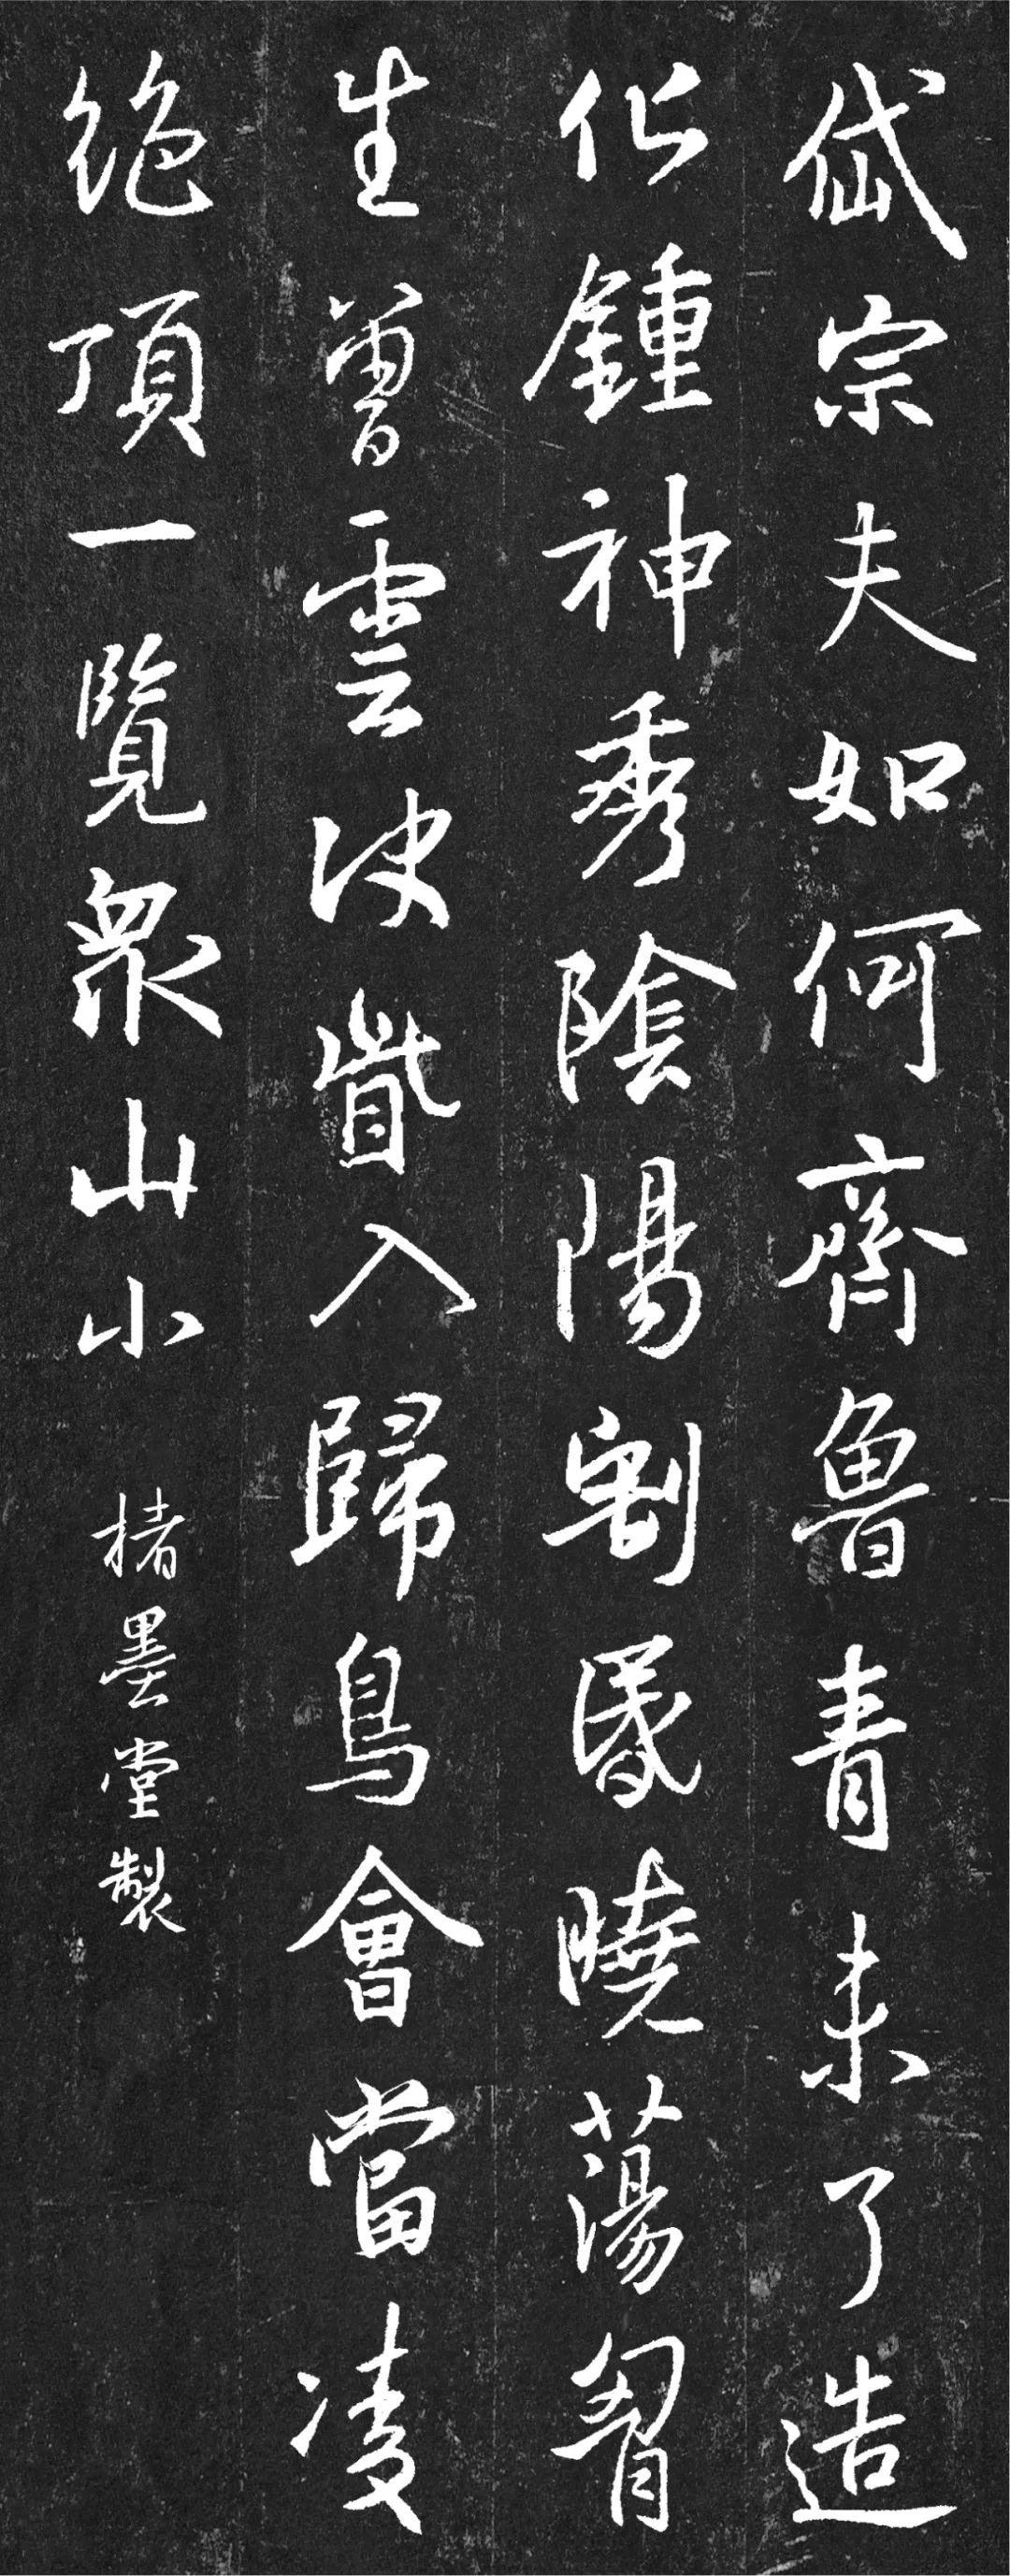 岱宗夫如何齊魯青未了造
化鍾神秀陰陽割昏曉蕩胷
生曾雲決眥入歸鳥會當凌
絕頂一覽衆山小
楮墨堂製